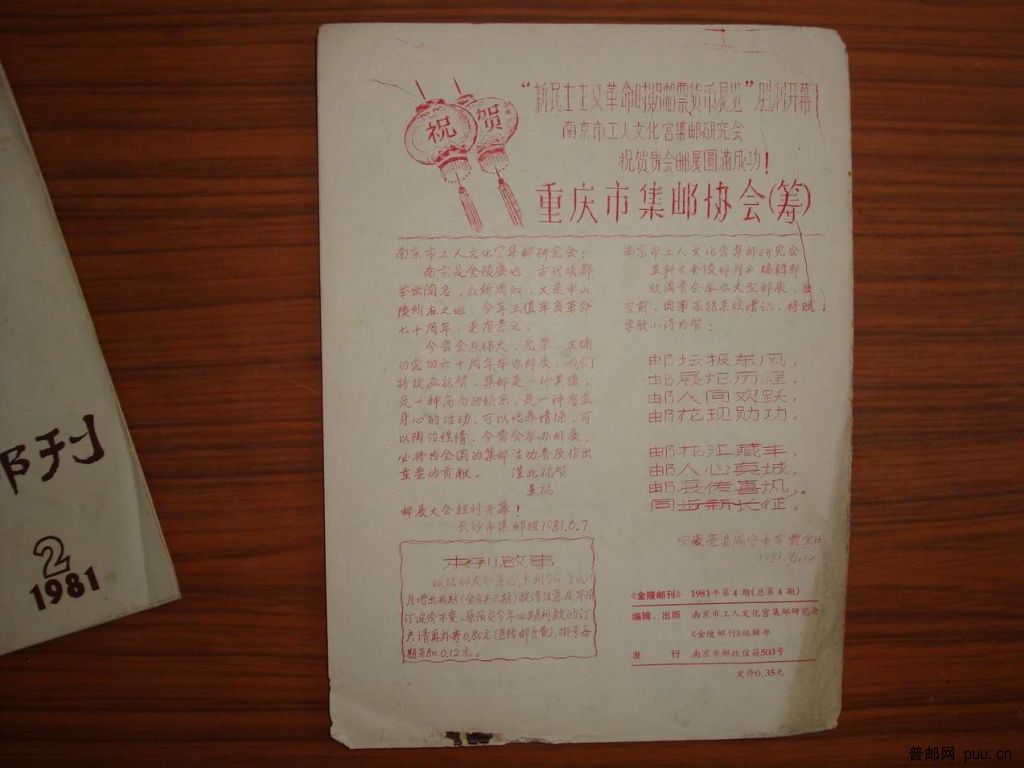 祝贺
“新民主主义革命时期邮票货币展览”胜利开幕!
南京市工人文化宫集邮研究会
祝贺贵会邮展圆满成功!
重庆市集邮协会(筹)
南京市工人文化宫集邮研究会:
南京是金陵盛地,古代明都
举世闻名,众所周知,又是中山
陵所在之地,今年正值辛亥革命
七十周年,更有意义。
今贵会在伟大、光荣、正确
的党的六十周年举办邮展,我们
特致函祝贺。集邮是一种美德,
是一种高尚的娱乐,是一种有益
身心的活动,可以培养情操,可
以陶冶性情,今贵会举办邮展,
必将为全国的集邮活动普及作出
重要的贡献。 谨此祝贺
并祝
邮展大会胜利开幕!
长沙市集邮组1981.6.7
本刊启事
月增出两期(全年共六期)敬请注意及早预
订,定价不变。原预定今年四期刊款的订
户请再补寄0.80元(包括邮包费),挂号每
期另加0.12元。
南京市工人文化宫集邮研究会
并转《金陵邮刊》编辑部
欣闻贵会举办大型邮展,
邮坛报东风,
邮展记历程,
邮人同欢跃,
邮花现勋功。
邮花江藏丰,
邮人心真诚,
邮展传喜讯,
同步新长征。
《金陵邮刊》 1981年第4期(总第4期)
编辑、出版 南京市工人文化宫集邮研究会
《金陵邮刊》编辑部
发 行 南京市邮政信箱503号
定价0.35元
邮刊
2
1981
普邮网 puu.cn